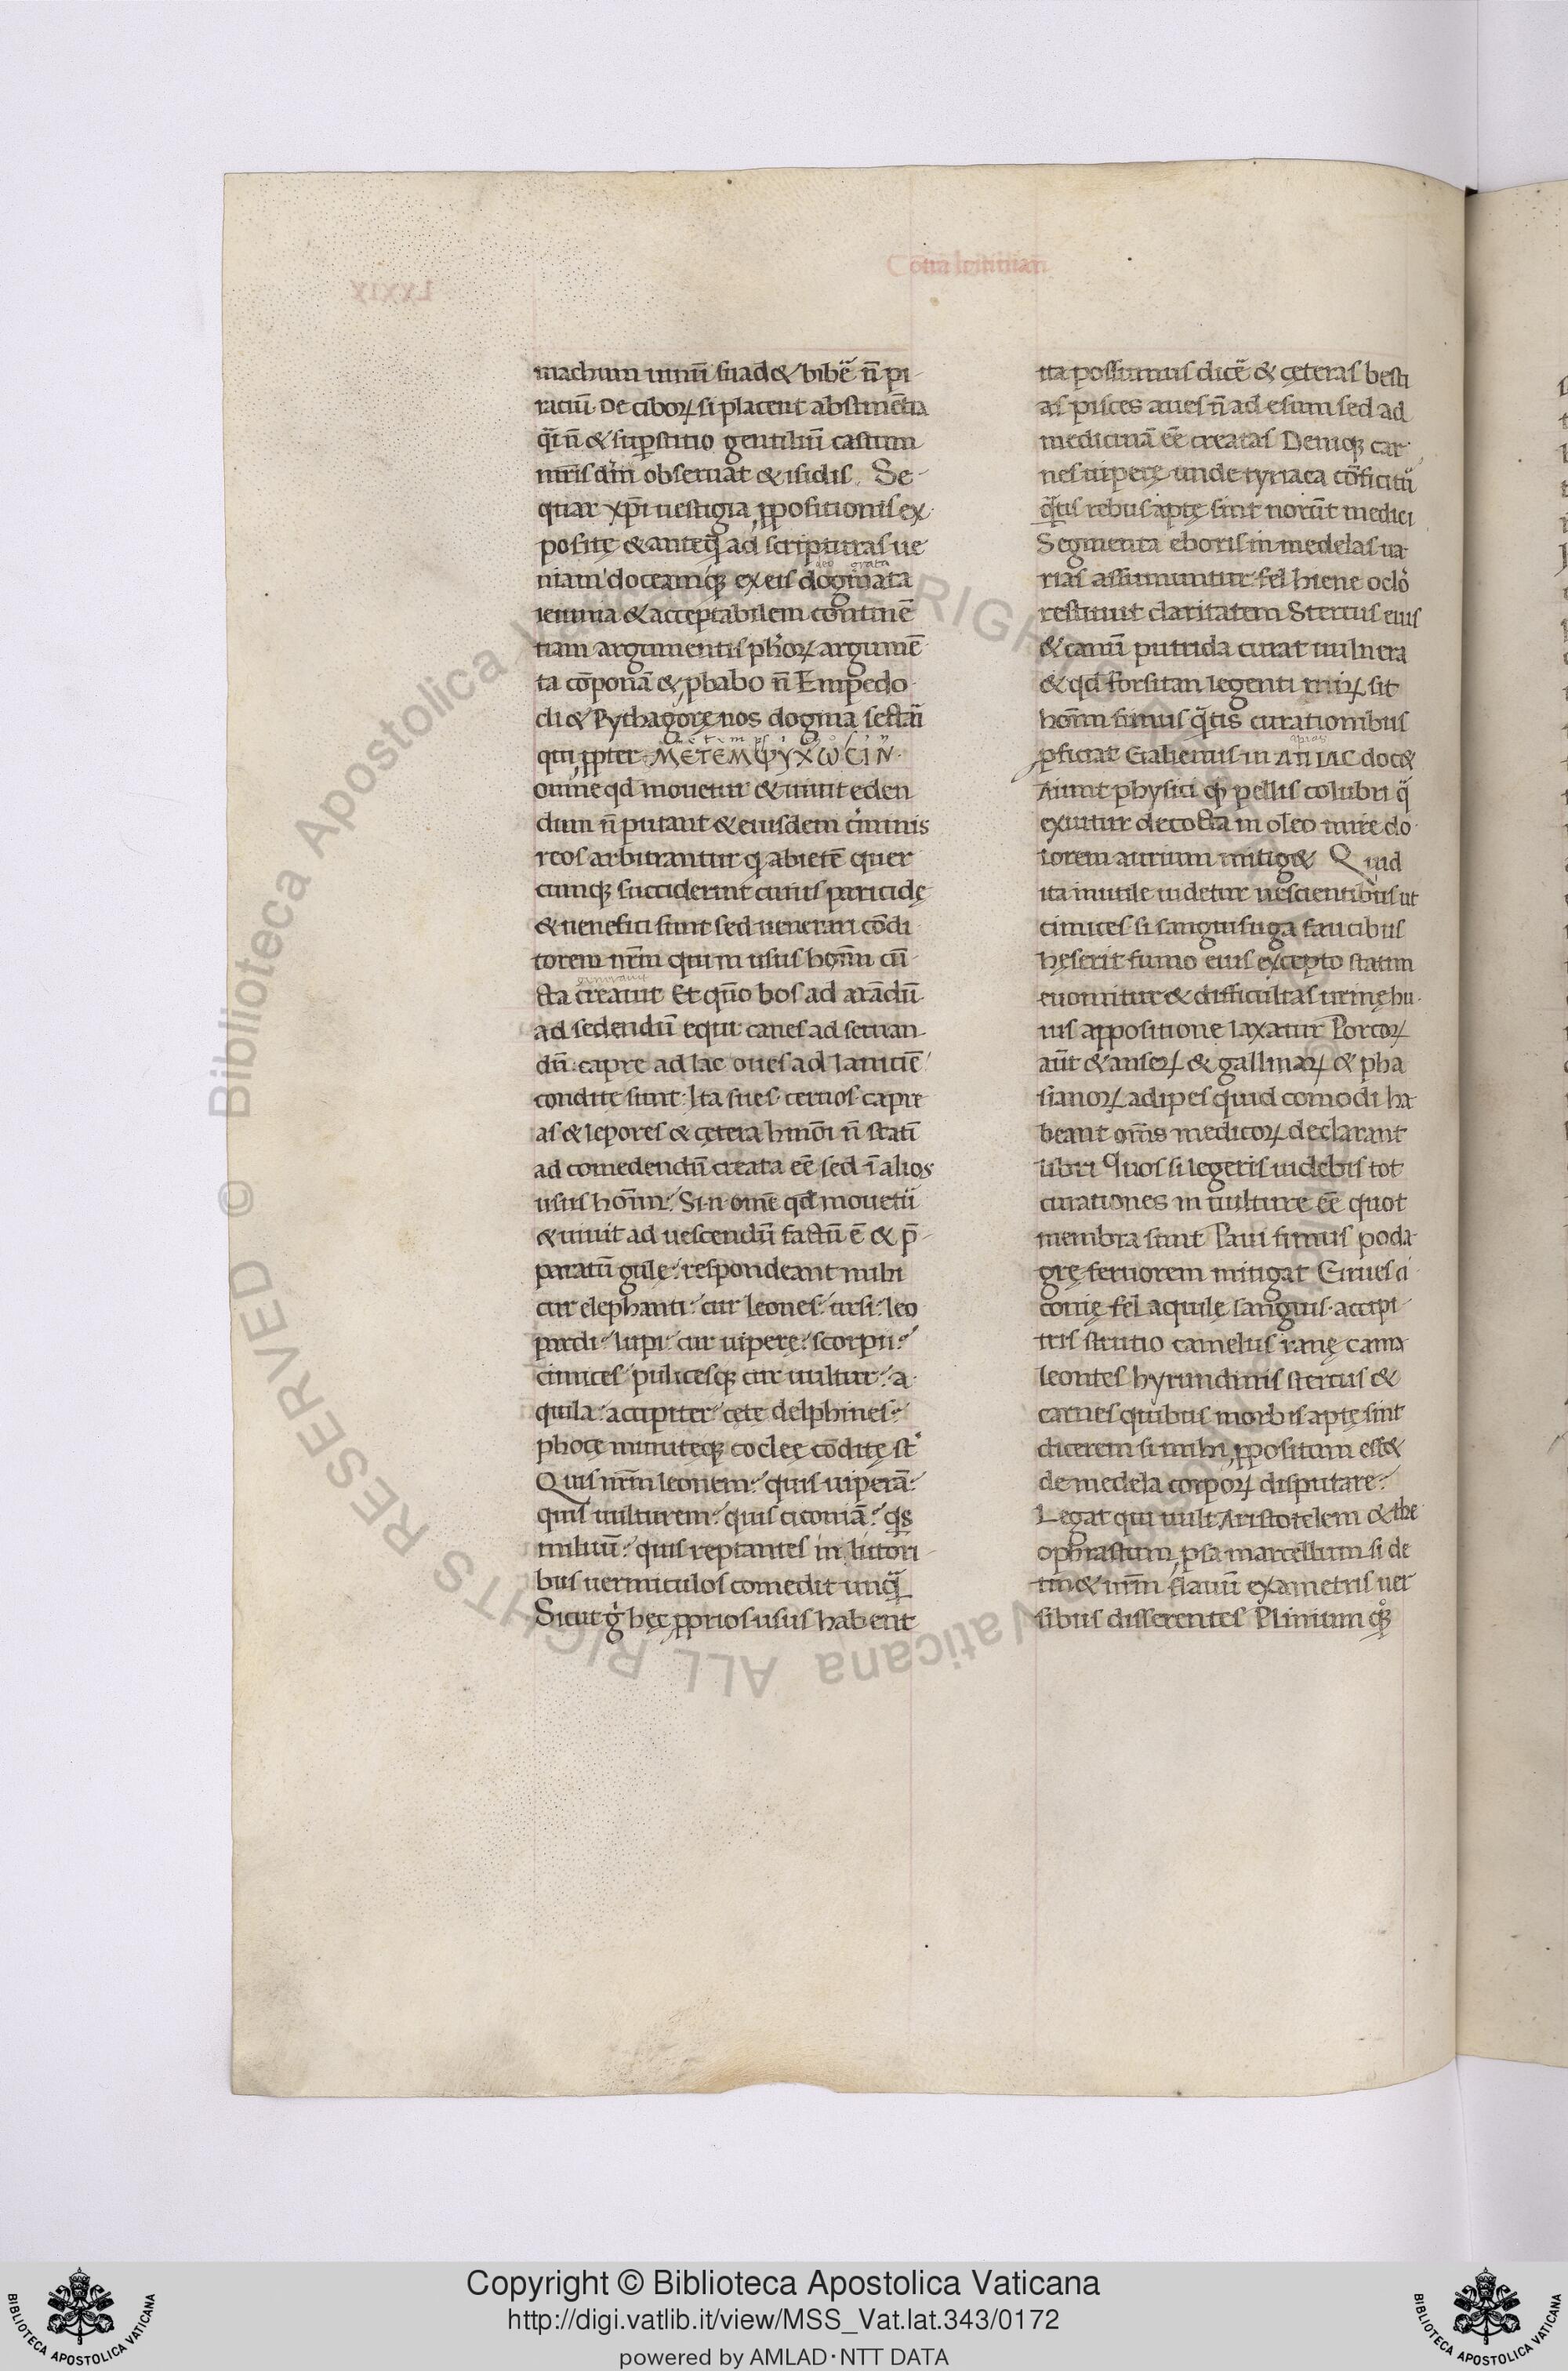 Cōtra Iouinian̄
machum uinū suad& bibē n̄ pi
raciū. De ciboꝝ si placent abstinētia
q̄i n̄ & suꝑstitio gentiliū castum
mr̄is dm̄ obseruāt & isidis. Se-
quar xp̄i uestigia ꝓpositionis ex
positę & anteq̄ ad scripturas ue
niam doceamqꝫ ex eis dogmata
deo grata
ieiunia & acceptabilem continē
tiam argumentis ph̄oꝝ argumē
ta cōponā & ꝓbabo n̄ Empedo
cli & Pythagorę nos dogma sectari
qui ꝓpter ΜΕΤΕΜΨΥΧѠϹΙΝ
omne qd mouetur & uiuit eden
dum n̄ putant & eiusdem criminis
reos arbitrantur q abietē quer
cumqꝫ succiderint cuius paricidę
& uenefici sunt sed uenerari cōdi
torem nr̄m qui in usus hoīm cū
cta creauit Et qūo bos ad arādū
ad sedendū equi canes ad seruan
dū: capre ad lac oues ad laniciē
condite sunt: Ita sues ceruos capre
as & lepores & cętera hm̄oi n̄ statī
ad comedendū creata eē sed ī alios
usus hoīm. Si n̄ omē qd mouetur
& uiuit ad uescendū factū ē & p̄
paratū gule: respondeant mihi
cur elephanti: cur leones: ursi: leo
pardi: lupi: cur uiperę: scorpii:
cimices: pulicesqꝫ cur uultur: a
quila: accipiter: cętę delphines:
phocę minuteqꝫ coclee cōditę st̄
Quis nr̄m leonem: quis uiperā:
quis uulturem: quis ciconiā: qͥs
miluū: quis reptantes in litori
bus uermiculos comedit unq̄
Sicut g̊ hęc ꝓprios usus habent
ita possumus dicē & cęteras besti
as pisces aues n̄ ad esum sed ad
medicinā eē creatas Deniqꝫ car
nes uiperę unde tyriaca cōficitur
q̄tis rebus aptę sint norūt medici
Segmenta eboris in medelas ua
rias assumuntur fel hiene oclo
restituit claritatem Stercus eius
& canū putrida curat uulnera
& qd forsitan legenti miꝝ sit
hoīm fimus q̄tis curationibus
ꝓficiat Galienus in ΑΠΙΑϹ doc&
Aiunt physici qꝫ pellis colubri q̄
exuitur decocta in oleo mire do
lorem aurium mitig& Quid
ita inutile uidetur nescientibus ut
cimices si sanguisuga faucibus
hęserit fumo eius excepto statim
euomitur & difficultas urinę hu
ius appositione laxatur Porcoꝝ
aūt & anseꝝ & gallinaꝝ & pha
sianoꝝ adipes quid comodi ha
beant om̄s medicoꝝ declarant
libri Quos si legeris uidebis tot
curationes in uulture eē quot
membra sunt Paui fimus poda
grę feruorem mitigat Grues ci
conię fel aquilę sanguis accipi
tris strutio camelus ranę cama
leontes hyrundinis stercus &
carnes quibus morbis aptę sint
dicerem si mihi ꝓpositum ess&
de medela corpoꝝ disputare:
Legat qui uult Aristotelem & the
ophrastum ꝓsa marcellum si de
tin& nr̄m flauiū exametris uer
sibus disserentes Plinium qꝫ
Copyright © Biblioteca Apostolica Vaticana
http://digi.vatlib.it/view/MSS_Vat.lat.343/0172
powered by AMLAD·NTT DATA
© Biblioteca Apostolica Vaticana ALL RIGHTS RESERVED
BIBLIOTECA APOSTOLICA VATICANA
BIBLIOTECA APOSTOLICA VATICANA